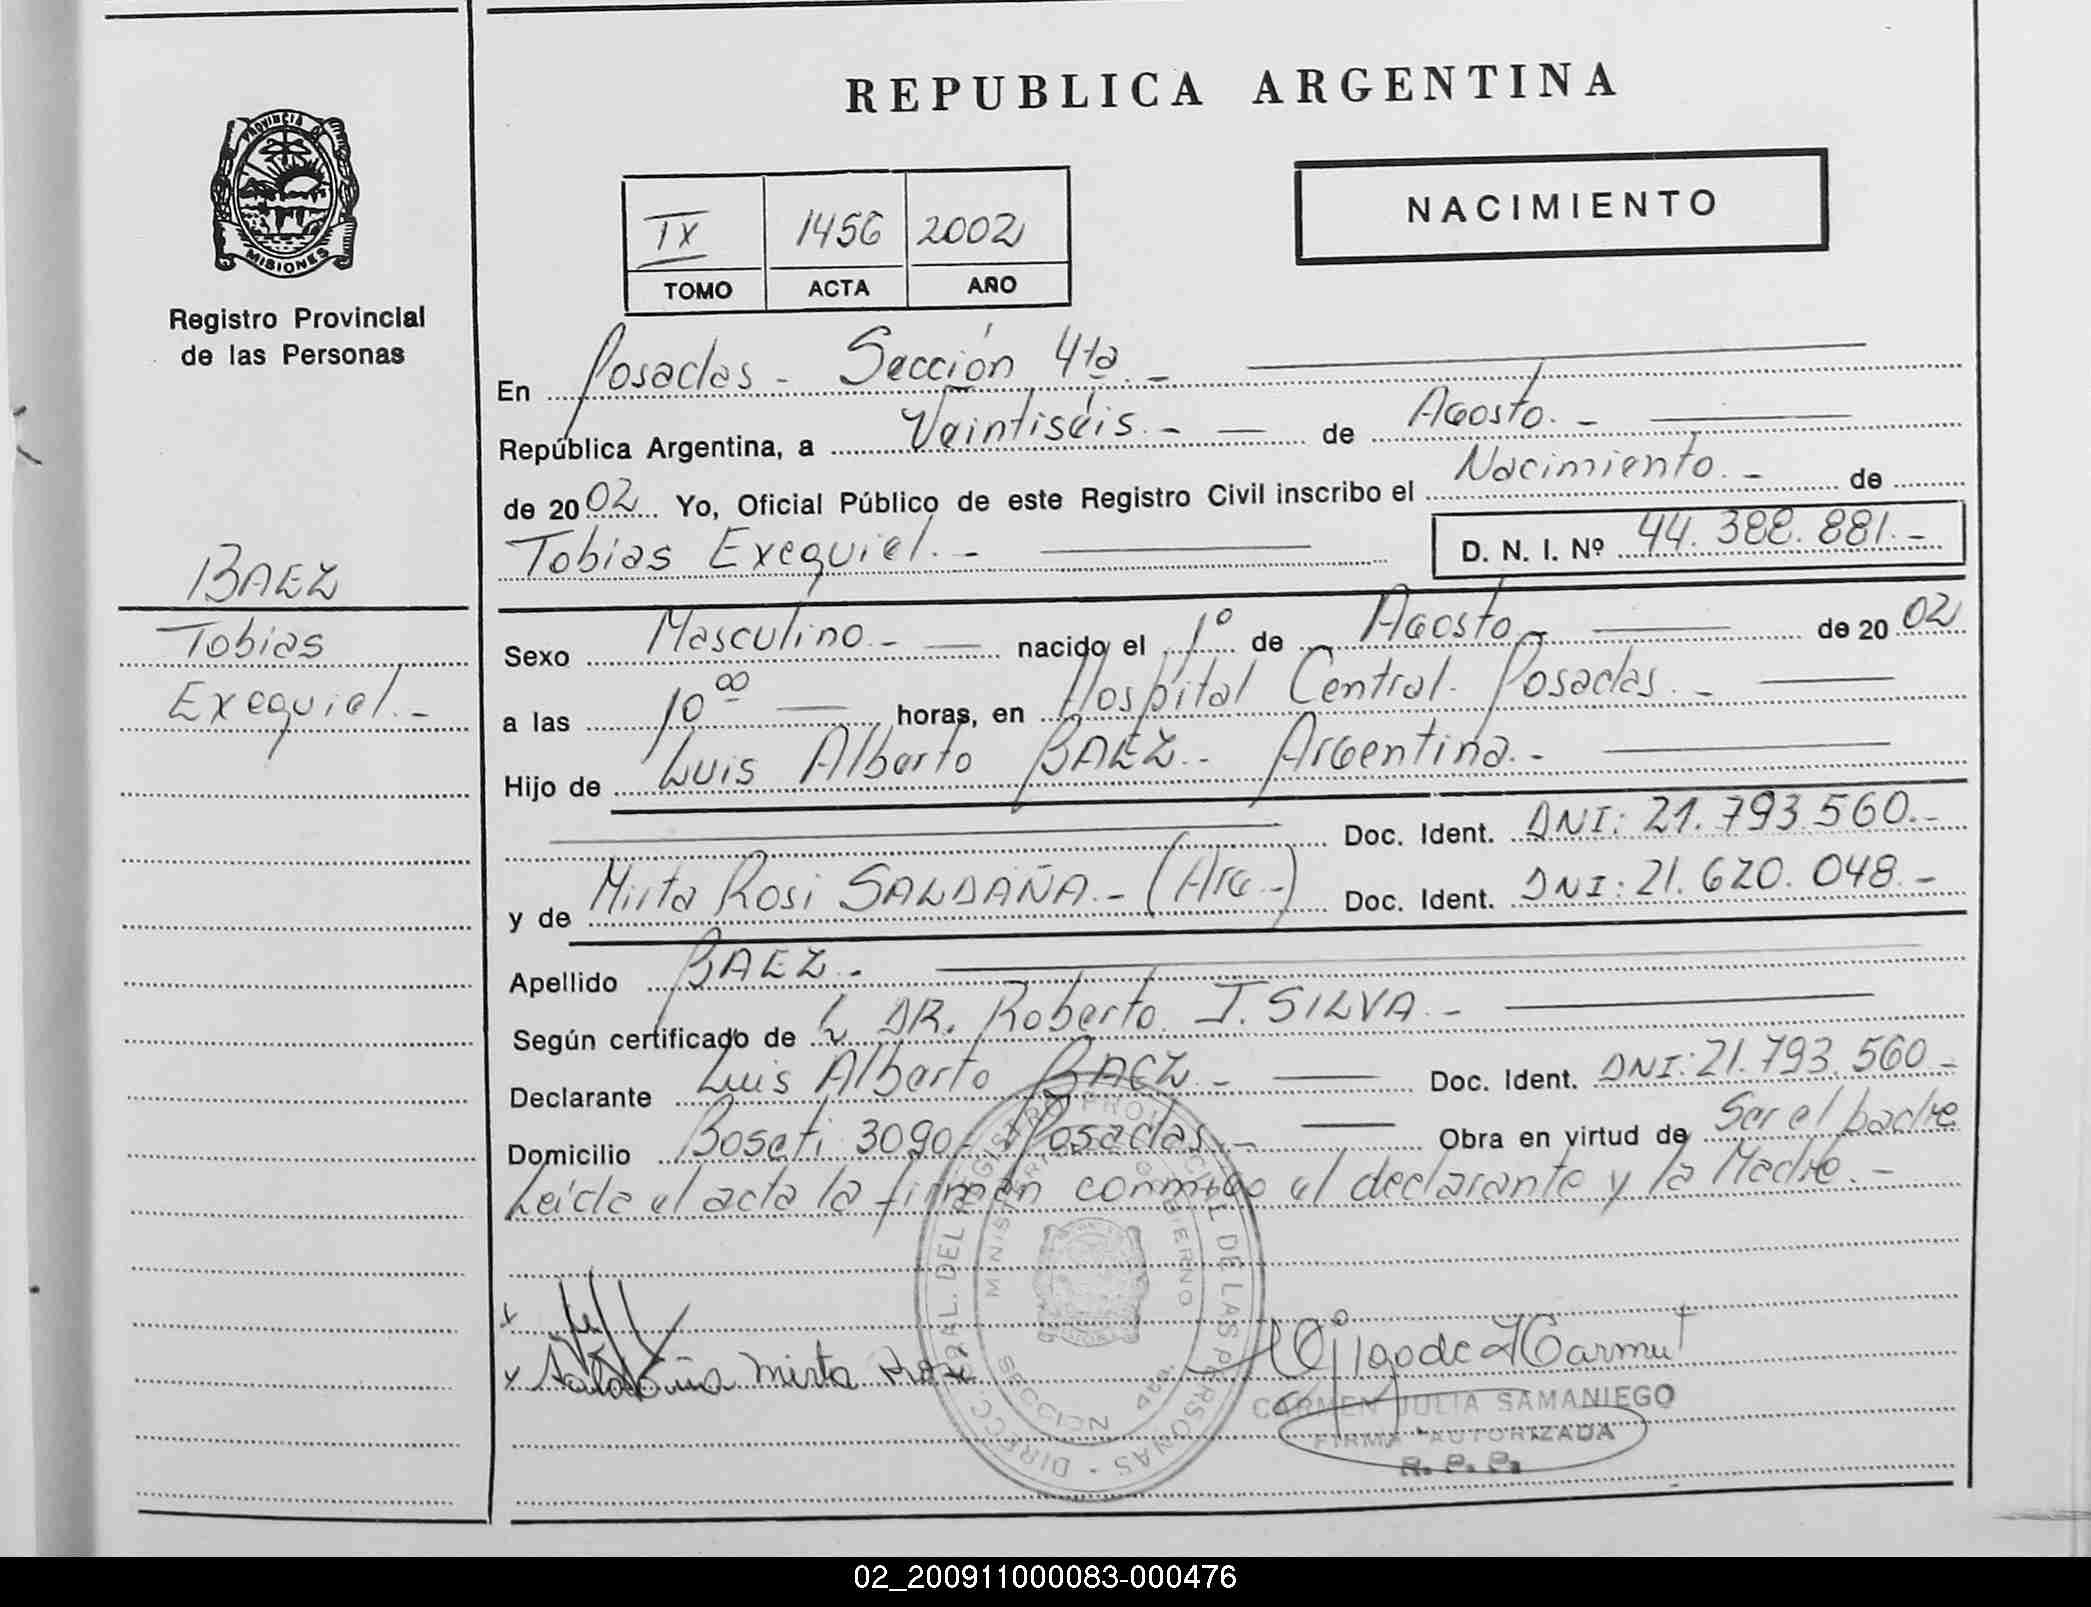 REPUBLICA ARGENTINA
PROVINCIA DE
MISIONES
Registro Provincial
de las Personas
NACIMIENTO
IX 1456 2002
TOMO ACTA AÑO
En Posadas - Sección 4ta. -
República Argentina, a Veintiséis. - de Agosto. -
de 2002 Yo, Oficial Público de este Registro Civil inscribo el Nacimiento. - de
Tobias Exequiel. - D. N. I. Nº 44.388.881.-
BAEZ
Tobias
Exequiel. -
Sexo Masculino. - nacido el 1º de Agosto. - de 2002
a las 10 00 horas, en Hospital Central. Posadas. -
Hijo de Luis Alberto BAEZ. - Argentina. -
Doc. Ident. DNI: 21.793.560.-
y de Mirta Rosi SALDAÑA. - (Arg.-) Doc. Ident. DNI: 21.620.048.-
Apellido BAEZ. -
Según certificado de DR. Roberto J. SILVA. -
Declarante Luis Alberto BAEZ. - Doc. Ident. DNI: 21.793.560-
Domicilio Boseti 3090- Posadas. - Obra en virtud de Ser el padre
Leída el acta la firman conmigo el declarante y la Madre. -
DIRECC. GRAL. DEL REGISTRO PROVINCIAL DE LAS PERSONAS -
MINISTERIO GOBIERNO
SECCION 4ta.
Saldaña Mirta Rosi
CARMEN JULIA SAMANIEGO
FIRMA AUTORIZADA
R. P. P.
02_200911000083-000476